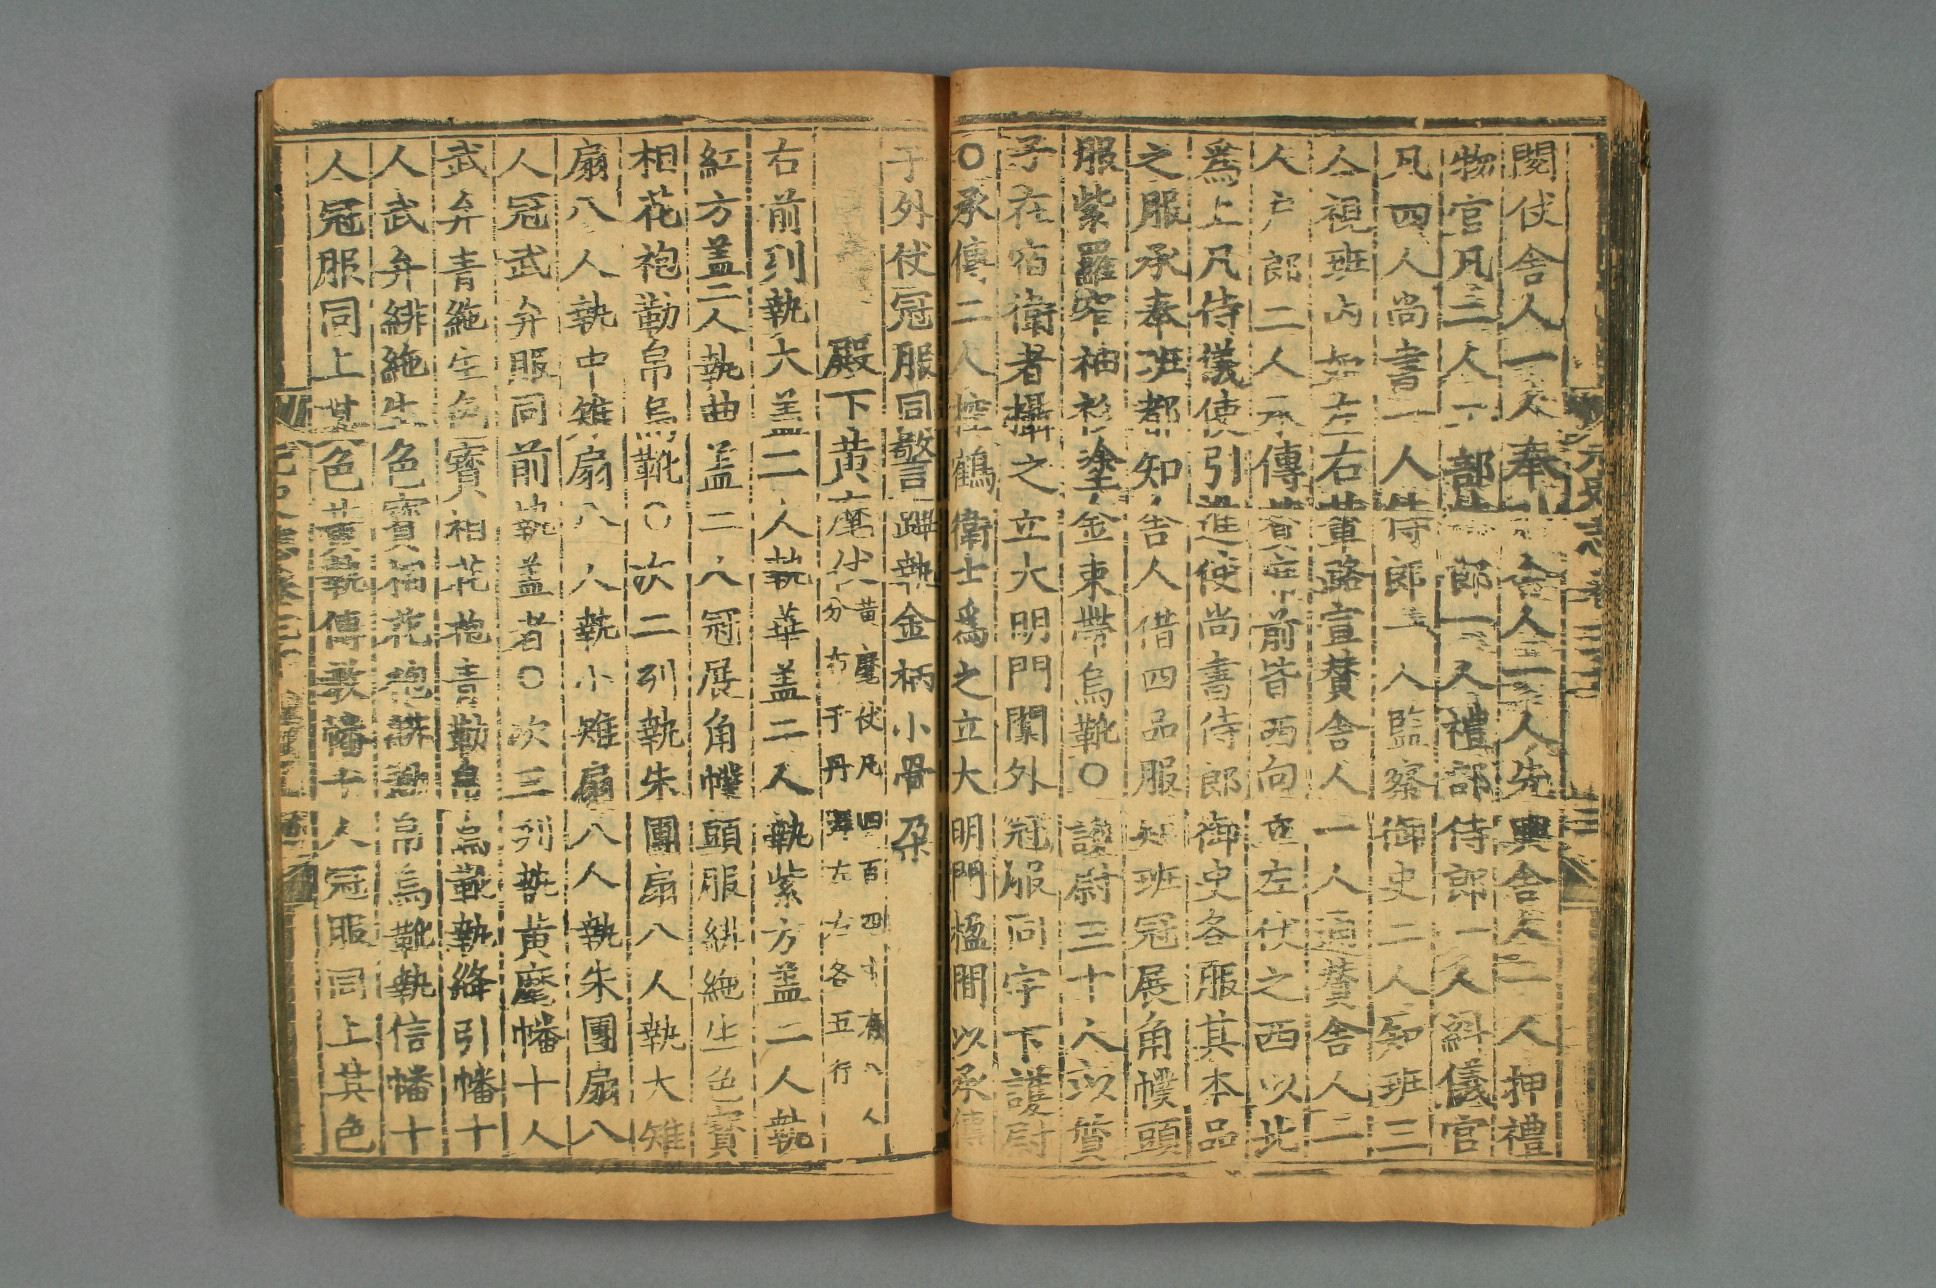 元史志卷三十
閱仗舍人一人奉引舍人一人先輿舍人二人押禮
物官凡三人工部侍郎一人禮部侍郎一人糾儀官
凡四人尚書一人侍郎一人監察御史二人知班三
人視班內如左右輦路宣贊舍人一人通贊舍人二
人戶郎二人承傳贊席前皆西向立左仗之西以北
爲上凡侍儀使引進使尚書侍郎御史各服其本品
之服承奉班都知舍人借四品服知班冠展角幞頭
服紫羅窄袖衫塗金束帶烏靴○護尉三十人以質
子在宿衛者攝之立大明門闑外冠服同宇下護尉
○承傳二人控鶴衛士爲之立大明門楹間以承傳
于外仗冠服同警蹕執金柄小骨朵
殿下黃麾仗黃麾仗凡四百四十有八人
分布于丹墀左右各五行
右前列執大蓋二人執華蓋二人執紫方蓋二人執
紅方蓋二人執曲蓋二人冠展角幞頭服緋絁生色寶
相花袍勒帛烏靴○次二列執朱團扇八人執大雉
扇八人執中雉扇八人執小雉扇八人執朱團扇八
人冠武弁服同前執蓋者○次三列執黃麾幡十人
武弁青絁生色寶相花袍青勒帛烏靴執絳引幡十
人武弁緋絁生色寶相花袍緋勒帛烏靴執信幡十
人冠服同上其色黃執傳教幡十人冠服同上其色